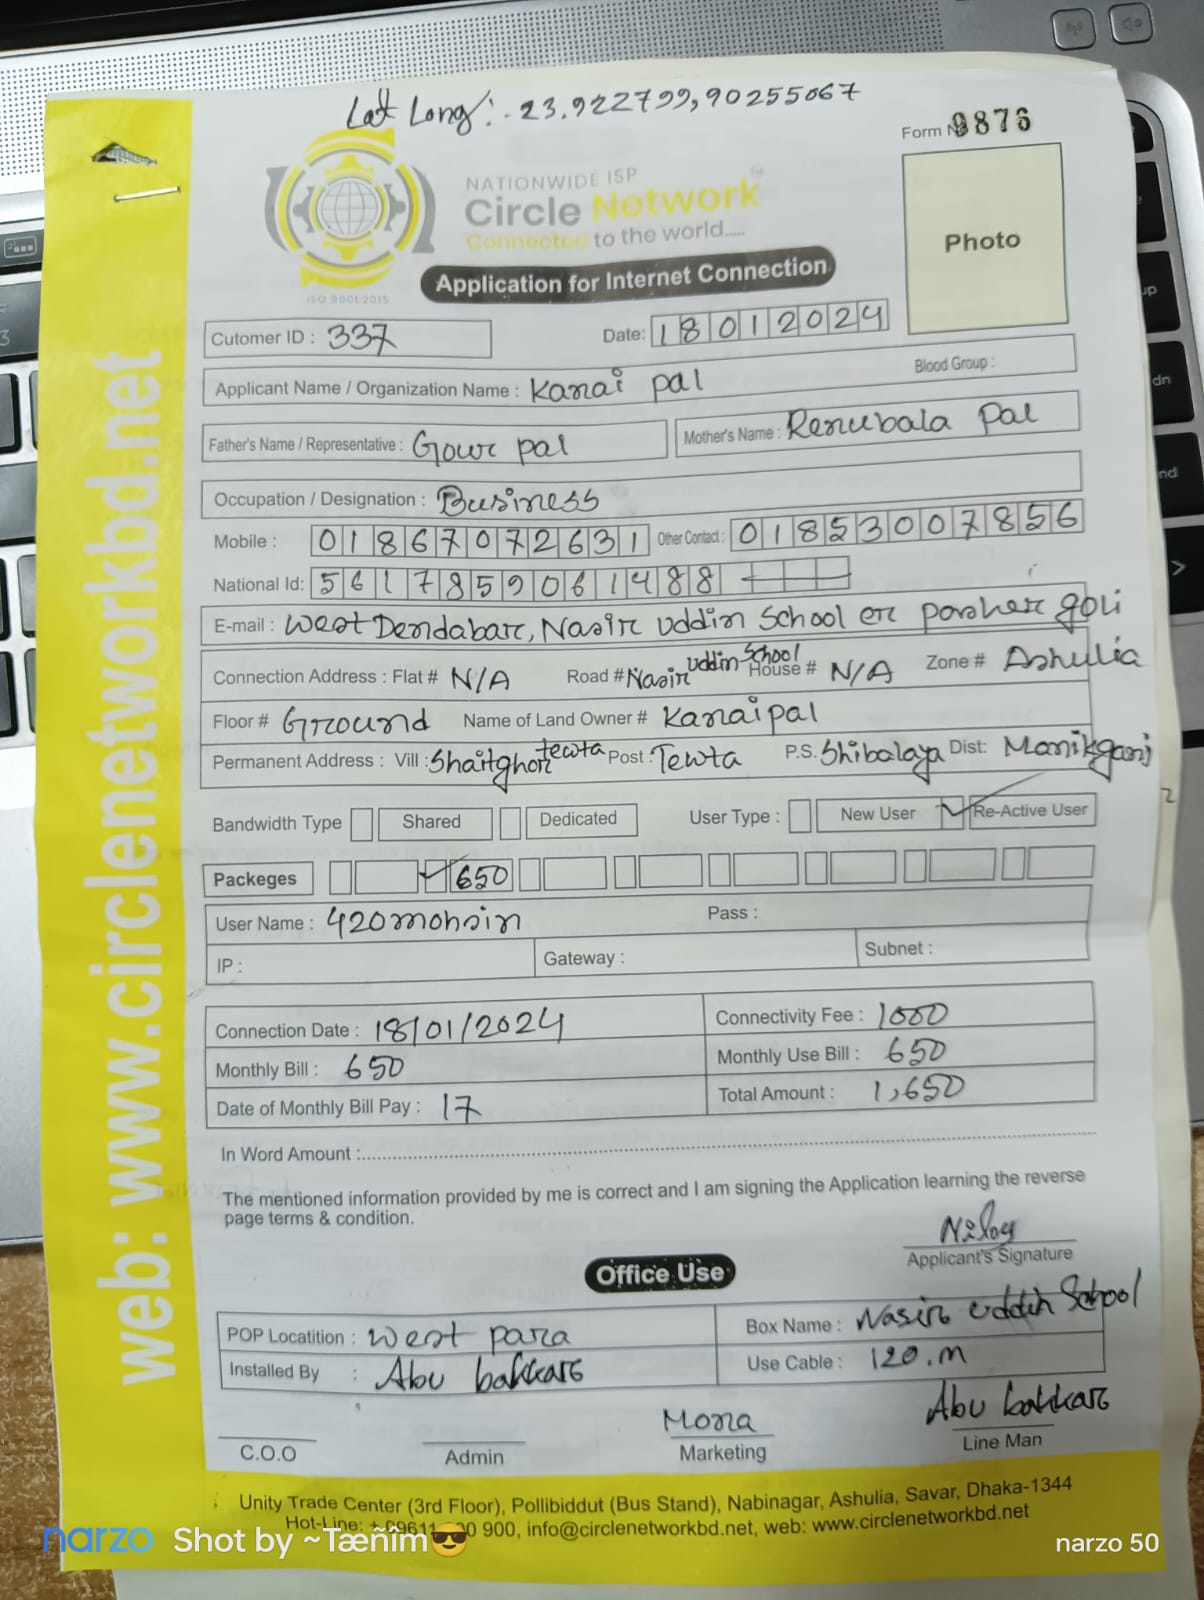 Lat Long: 23.922799,90255067
Form N 9876
NATIONWIDE ISP
Circle Network
Connected to the world.....
ISO 9001:2015
Application for Internet Connection
Photo
Cutomer ID : 337
Date: 18012024
Applicant Name / Organization Name : Kanai pal
Blood Group :
Father's Name / Representative : Gour pal
Mother's Name : Renubala Pal
Occupation / Designation : Business
Mobile : 01867072631 Other Contact : 01853007856
National Id: 5617859061488
E-mail : West Dendabar, Nasir uddin School er pasher goli
Connection Address : Flat # N/A Road # Nasir uddin School House # N/A Zone # Ashulia
Floor # Ground Name of Land Owner # Kanai pal
Permanent Address : Vill : Shaitghor tewta Post : Tewta P.S. Shibalaya Dist: Manikganj
Bandwidth Type Shared Dedicated User Type : New User Re-Active User
Packeges 650
User Name : 420mohsin Pass :
IP : Gateway : Subnet :
Connection Date : 18/01/2024 Connectivity Fee : 1000
Monthly Bill : 650 Monthly Use Bill : 650
Date of Monthly Bill Pay : 17 Total Amount : 1,650
In Word Amount :
The mentioned information provided by me is correct and I am signing the Application learning the reverse
page terms & condition.
Niloy
Applicant's Signature
Office Use
POP Locatition : West para Box Name : Nasir uddin School
Installed By : Abu bakkar Use Cable : 120.m
Mona Abu bakkar
C.O.O Admin Marketing Line Man
Unity Trade Center (3rd Floor), Pollibiddut (Bus Stand), Nabinagar, Ashulia, Savar, Dhaka-1344
Hot-Line: 900, info@circlenetworkbd.net, web: www.circlenetworkbd.net
web: www.circlenetworkbd.net
narzo Shot by ~Tæñîm😎 narzo 50